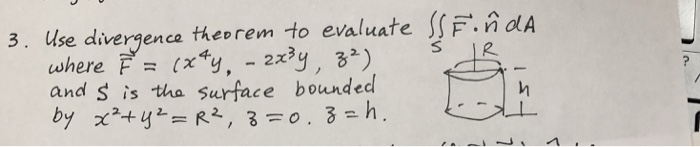 3. Use divergence theorem to evaluate ∬_S F⃗·n̂ dA
where F⃗ = (x⁴y, -2x³y, z²)
and S is the surface bounded
by x²+y²=R², z=0. z=h.
R
h
?